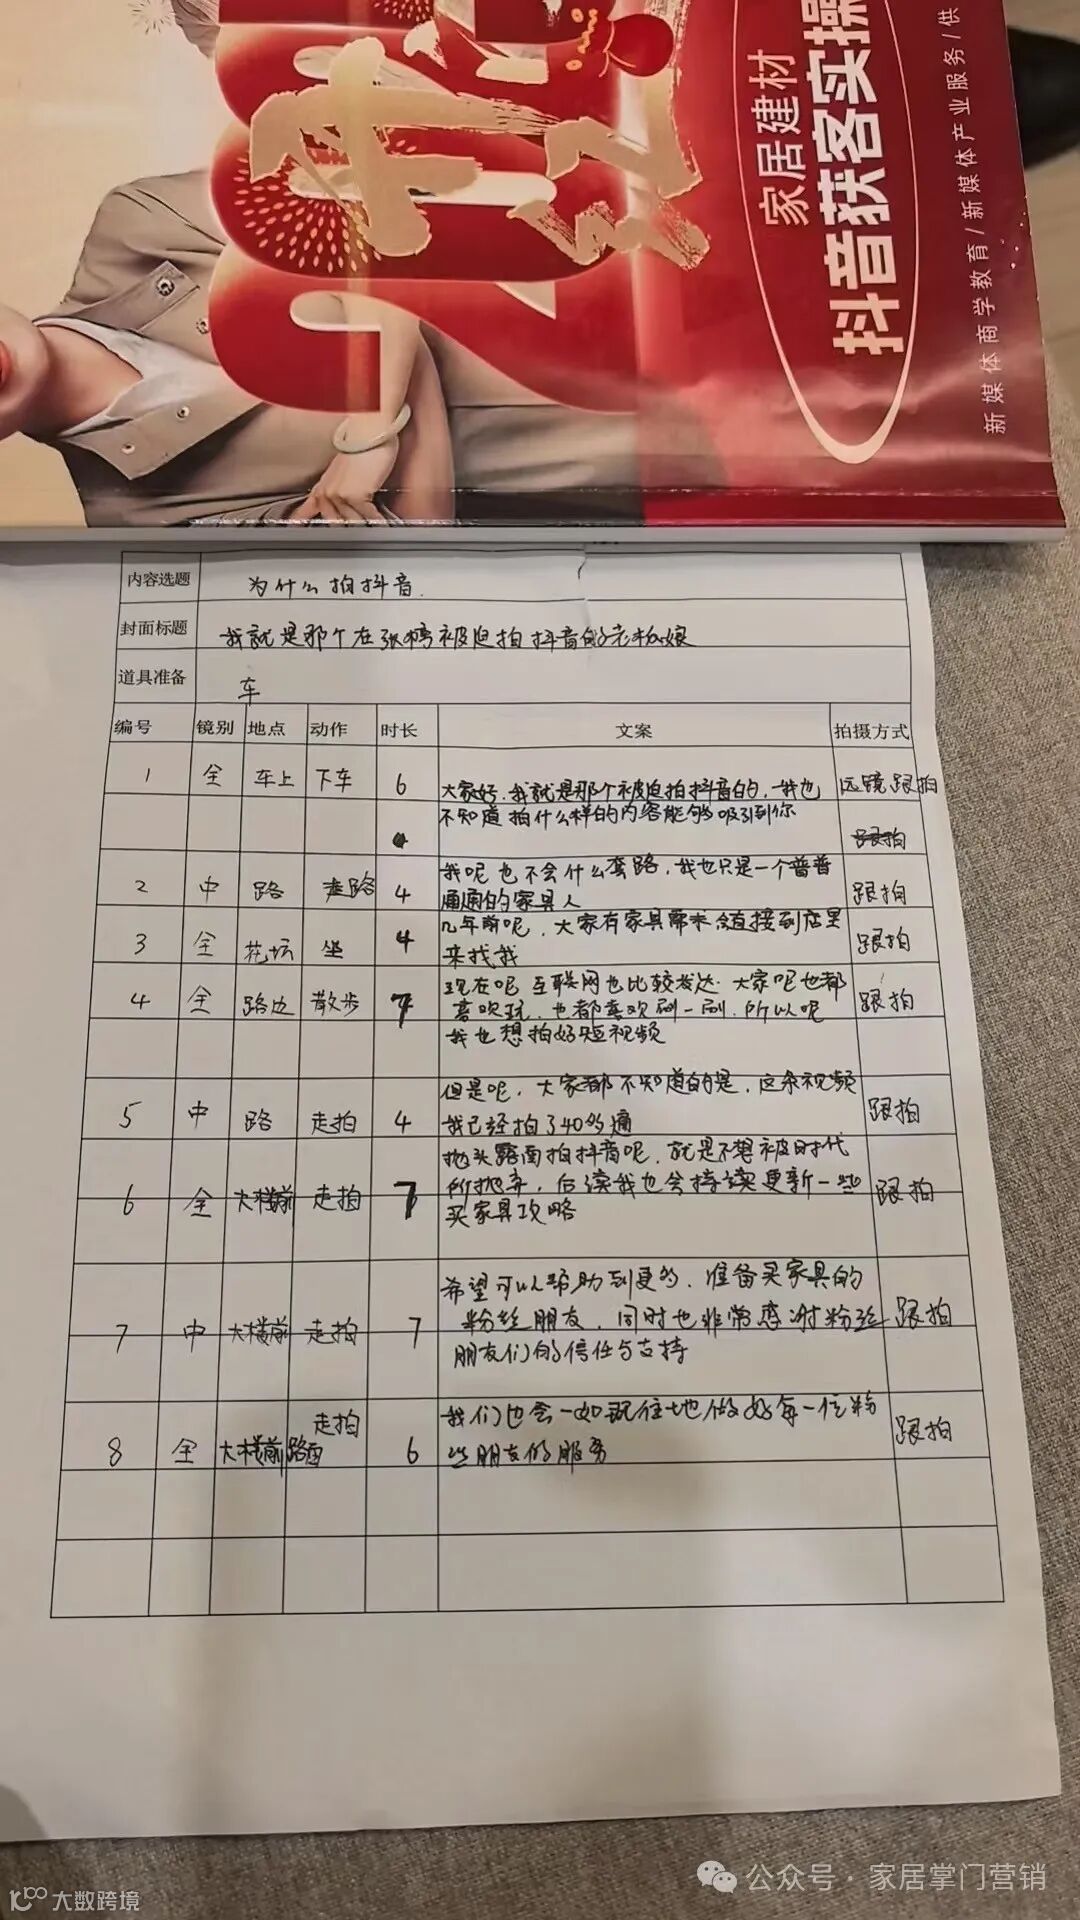 家居建材
抖音获客实操
新媒体商学教育/新媒体产业服务/供
内容选题 为什么拍抖音.
封面标题 我就是那个在张槎被迫拍抖音的老板娘
道具准备 车
编号 镜别 地点 动作 时长 文案 拍摄方式
1 全 车上 下车 6 大家好.我就是那个被迫拍抖音的,我也 远镜跟拍
不知道拍什么样的内容能够吸引到你
跟拍
2 中 路 走路 4 我呢也不会什么套路,我也只是一个普普 跟拍
通通的家具人
3 全 花坛 坐 4 几年前呢,大家有家具需求会直接到店里 跟拍
来找我
4 全 路边 散步 7 现在呢互联网也比较发达.大家呢也都 跟拍
喜欢玩,也都喜欢刷一刷.所以呢
我也想拍好短视频
5 中 路 走拍 4 但是呢,大家都不知道的是,这条视频 跟拍
我已经拍了40多遍
6 全 大楼前 走拍 7 抛头露面拍抖音呢,就是不想被时代 跟拍
所抛弃,后续我也会持续更新一些
买家具攻略
7 中 大楼前 走拍 7 希望可以帮助到更多,准备买家具的 跟拍
粉丝朋友,同时也非常感谢粉丝
朋友们的信任与支持
8 全 大楼前路面 走拍 6 我们也会一如既往地做好每一位粉 跟拍
丝朋友的服务
公众号·家居掌门营销
大数跨境